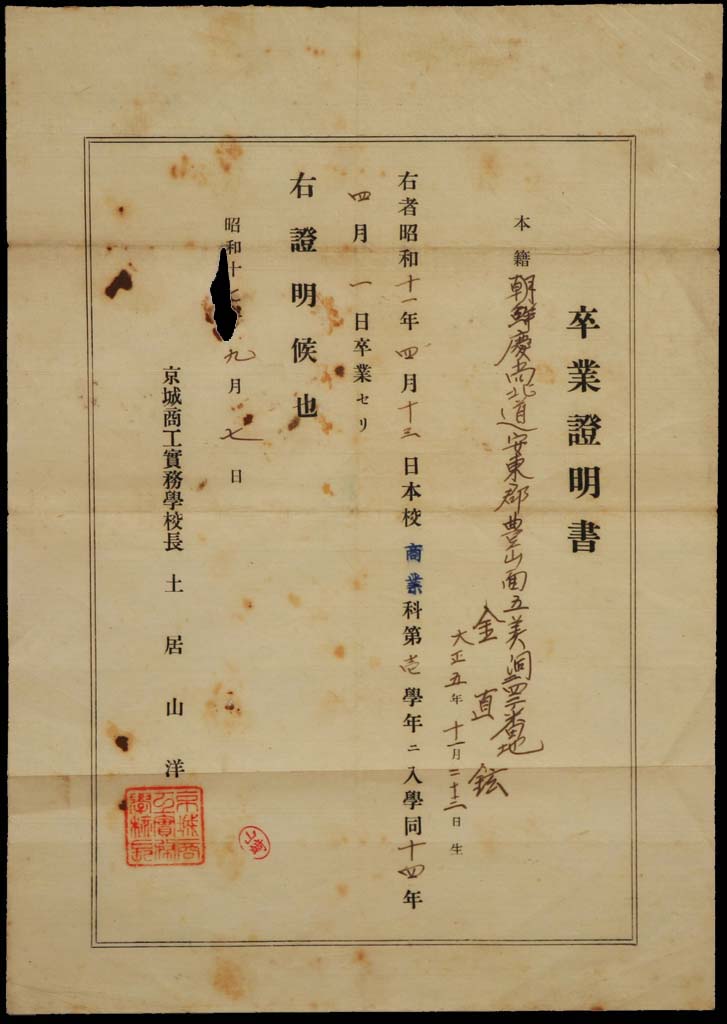 卒業證明書
本籍 朝鮮慶尚北道安東郡豊山面五美洞四二番地
金直鉉
大正五年十一月二十三日生
右者昭和十一年四月十三日本校商業科第壱學年ニ入學同十四年
四月一日卒業セリ
右證明候也
昭和十七年九月七日
京城商工實務學校長 土居山洋
京城商工實務學校長